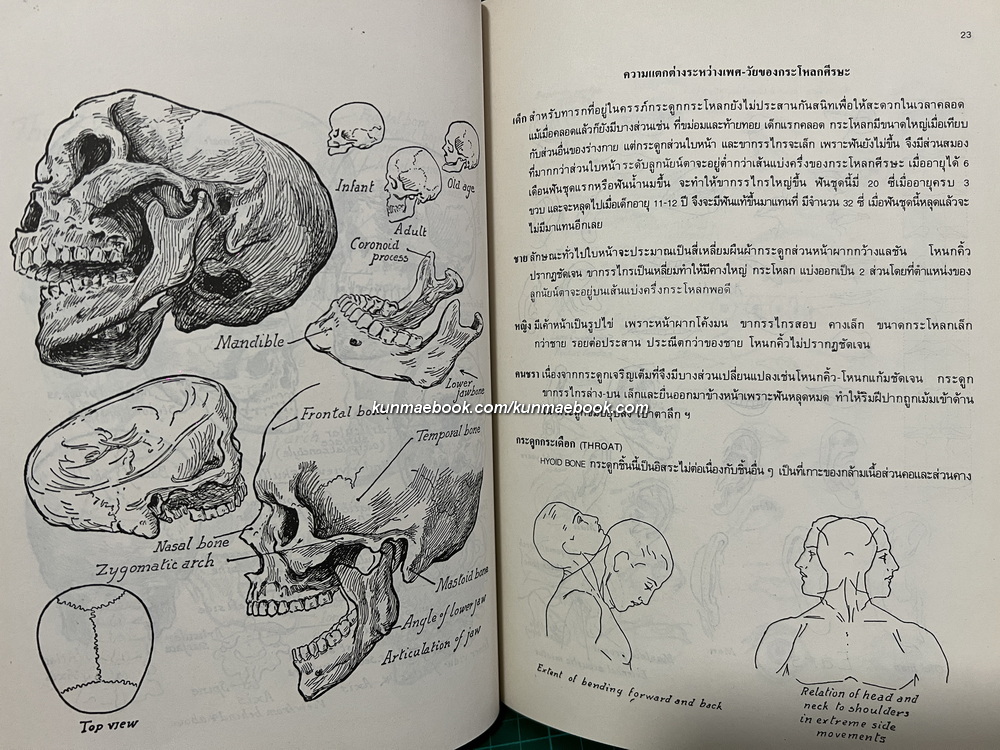 Infant
Old age
Adult
Coronoid
process
Mandible
Lower
jawbone
Frontal bone
Temporal bone
Nasal bone
Zygomatic arch
Mastoid bone
Angle of lower jaw
Articulation of jaw
Top view
kunmaebook.com/kunmaebook.com
23
ความแตกต่างระหว่างเพศ-วัยของกระโหลกศีรษะ
เด็ก สำหรับทารกที่อยู่ในครรภ์กระดูกกระโหลกยังไม่ประสานกันสนิทเพื่อให้สะดวกในเวลาคลอด
แม้เมื่อคลอดแล้วก็ยังมีบางส่วนเช่น ที่ขม่อมและท้ายทอย เด็กแรกคลอด กระโหลกมีขนาดใหญ่เมื่อเทียบ
กับส่วนอื่นของร่างกาย แต่กระดูกส่วนใบหน้า และขากรรไกรจะเล็ก เพราะฟันยังไม่ขึ้น จึงมีส่วนสมอง
ที่มากกว่าส่วนใบหน้า ระดับลูกนัยน์ตาจะอยู่ต่ำกว่าเส้นแบ่งครึ่งของกระโหลกศีรษะ เมื่ออายุได้ 6
เดือนฟันชุดแรกหรือฟันน้ำนมขึ้น จะทำให้ขากรรไกรใหญ่ขึ้น ฟันชุดนี้มี 20 ซี่เมื่ออายุครบ 3
ขวบ และจะหลุดไปเมื่อเด็กอายุ 11-12 ปี จึงจะมีฟันแท้ขึ้นมาแทนที่ มีจำนวน 32 ซี่ เมื่อฟันชุดนี้หลุดแล้วจะ
ไม่มีมาแทนอีกเลย
ชาย ลักษณะทั่วไปใบหน้าจะประมาณเป็นสี่เหลี่ยมผืนผ้ากระดูกส่วนหน้าผากกว้างแลชัน โหนกคิ้ว
ปรากฏชัดเจน ขากรรไกรเป็นเหลี่ยมทำให้มีคางใหญ่ กระโหลก แบ่งออกเป็น 2 ส่วนโดยที่ตำแหน่งของ
ลูกนัยน์ตาจะอยู่บนเส้นแบ่งครึ่งกระโหลกพอดี
หญิง มีเค้าหน้าเป็นรูปไข่ เพราะหน้าผากโค้งมน ขากรรไกรสอบ คางเล็ก ขนาดกระโหลกเล็ก
กว่าชาย รอยต่อประสาน ประณีตกว่าของชาย โหนกคิ้วไม่ปรากฏชัดเจน
คนชรา เนื่องจากกระดูกเจริญเต็มที่จึงมีบางส่วนเปลี่ยนแปลงเช่นโหนกคิ้ว-โหนกแก้มชัดเจน กระดูก
ขากรรไกรล่าง-บน เล็กและยื่นออกมาข้างหน้าเพราะฟันหลุดหมด ทำให้ริมฝีปากถูกเม้มเข้าด้าน
เบ้าตาลึก ฯ
กระดูกกระเดือก (THROAT)
HYOID BONE กระดูกชิ้นนี้เป็นอิสระไม่ต่อเนื่องกับชิ้นอื่น ๆ เป็นที่เกาะของกล้ามเนื้อส่วนคอและส่วนคาง
Extent of bending forward and back
Relation of head and
neck to shoulders
in extreme side
movements